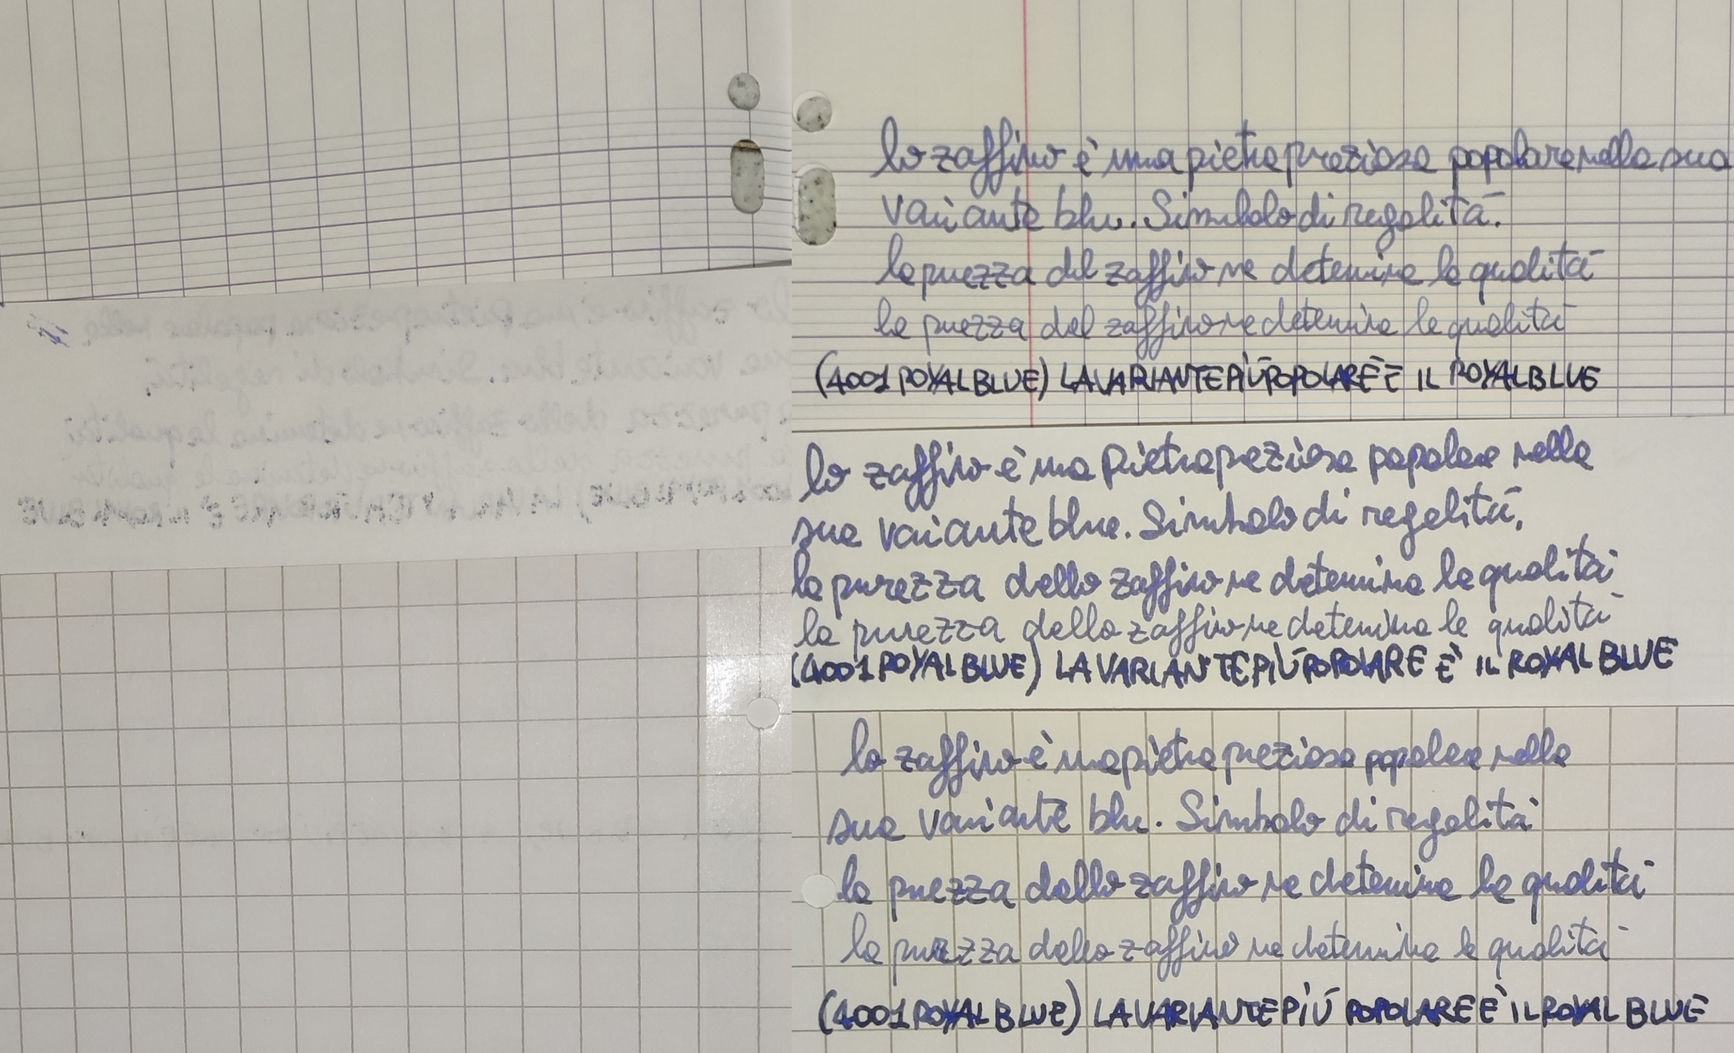 lo zaffiro è una pietra preziosa popolare nella sua
variante blu. Simbolo di regalità.
la purezza del zaffiro ne determina la qualità
la purezza del zaffiro ne determina la qualità
(4001 ROYAL BLUE) LA VARIANTE PIÙ POPOLARE È IL ROYAL BLUE
lo zaffiro è una pietra preziosa popolare nella
sua variante blue. Simbolo di regalità,
la purezza dello zaffiro ne determina la qualità
la purezza dello zaffiro ne determina la qualità
(4001 ROYAL BLUE) LA VARIANTE PIÙ POPOLARE È IL ROYAL BLUE
lo zaffiro è una pietra preziosa popolare nella
sua variante blu. Simbolo di regalità
la purezza dello zaffiro ne determina la qualità
la purezza dello zaffiro ne determina la qualità
(4001 ROYAL BLUE) LA VARIANTE PIÙ POPOLARE È IL ROYAL BLUE